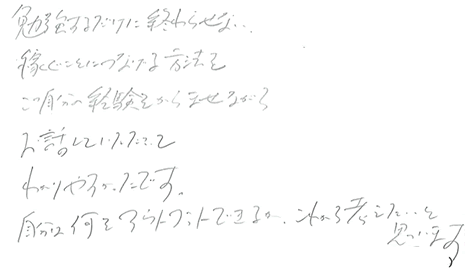 勉強するだけに終わらせない、
稼ぐことにつなげる方法を
ご自分の経験をからませながら
お話していただいて
わかりやすかったです。
自分は何をアウトプットできるか、これから考えたいと
思います